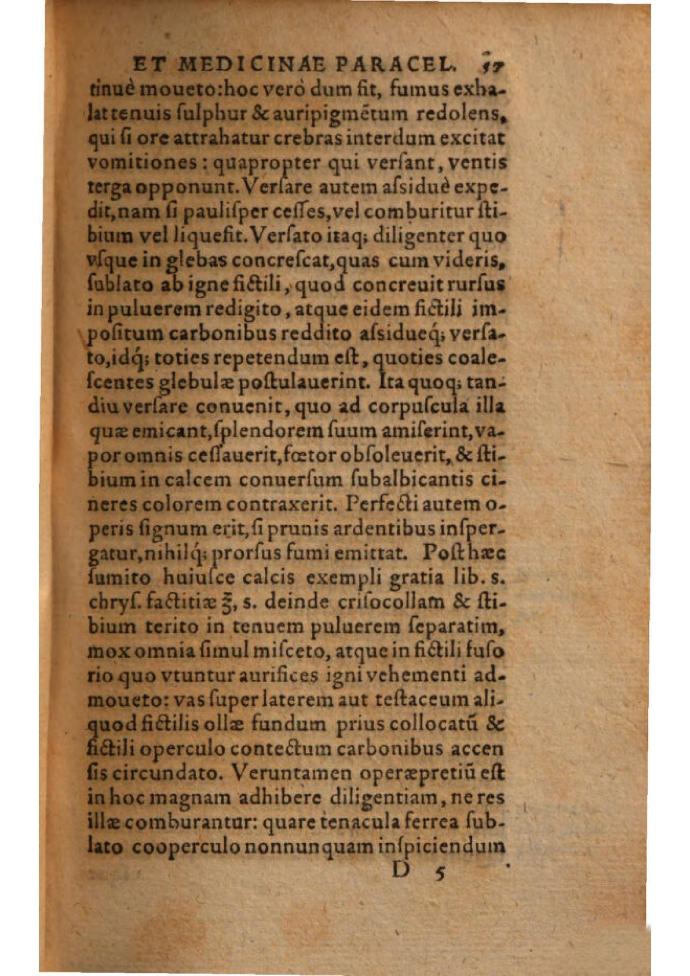 ET MEDICINAE PARACEL. 57
tinuè moueto:hoc verò dum fit, fumus exha-
lat tenuis ſulphur & auripigmẽtum redolens,
qui ſi ore attrahatur crebras interdum excitat
vomitiones : quapropter qui verſant, ventis
terga opponunt. Verſare autem aſsiduè expe-
dit, nam ſi pauliſper ceſſes, vel comburitur ſti-
bium vel liquefit. Verſato itaq; diligenter quo
vſque in glebas concreſcat, quas cum videris,
ſublato ab igne fictili, quod concreuit rurſus
in puluerem redigito, atque eidem fictili im-
poſitum carbonibus reddito aſsidueq́; verſa-
to, idq́; toties repetendum eſt, quoties coale-
ſcentes glebulæ poſtulauerint. Ita quoq; tan-
diu verſare conuenit, quo ad corpuſcula illa
quæ emicant, ſplendorem ſuum amiſerint, va-
por omnis ceſſauerit, fœtor obſoleuerit, & ſti-
bium in calcem conuerſum ſubalbicantis ci-
neres colorem contraxerit. Perfecti autem o-
peris ſignum erit, ſi prunis ardentibus inſper-
gatur, nihilq́; prorſus fumi emittat. Poſt hæc
ſumito huiuſce calcis exempli gratia lib. s.
chryſ. factitiæ ℥, s. deinde criſocollam & ſti-
bium terito in tenuem puluerem ſeparatim,
mox omnia ſimul miſceto, atque in fictili fuſo
rio quo vtuntur aurifices igni vehementi ad-
moueto: vas ſuper laterem aut teſtaceum ali-
quod fictilis ollæ fundum prius collocatũ &
fictili operculo contectum carbonibus accen
ſis circundato. Veruntamen operæpretiũ eſt
in hoc magnam adhibere diligentiam, ne res
illæ comburantur: quare tenacula ferrea ſub-
lato cooperculo nonnunquam inſpiciendum
D 5